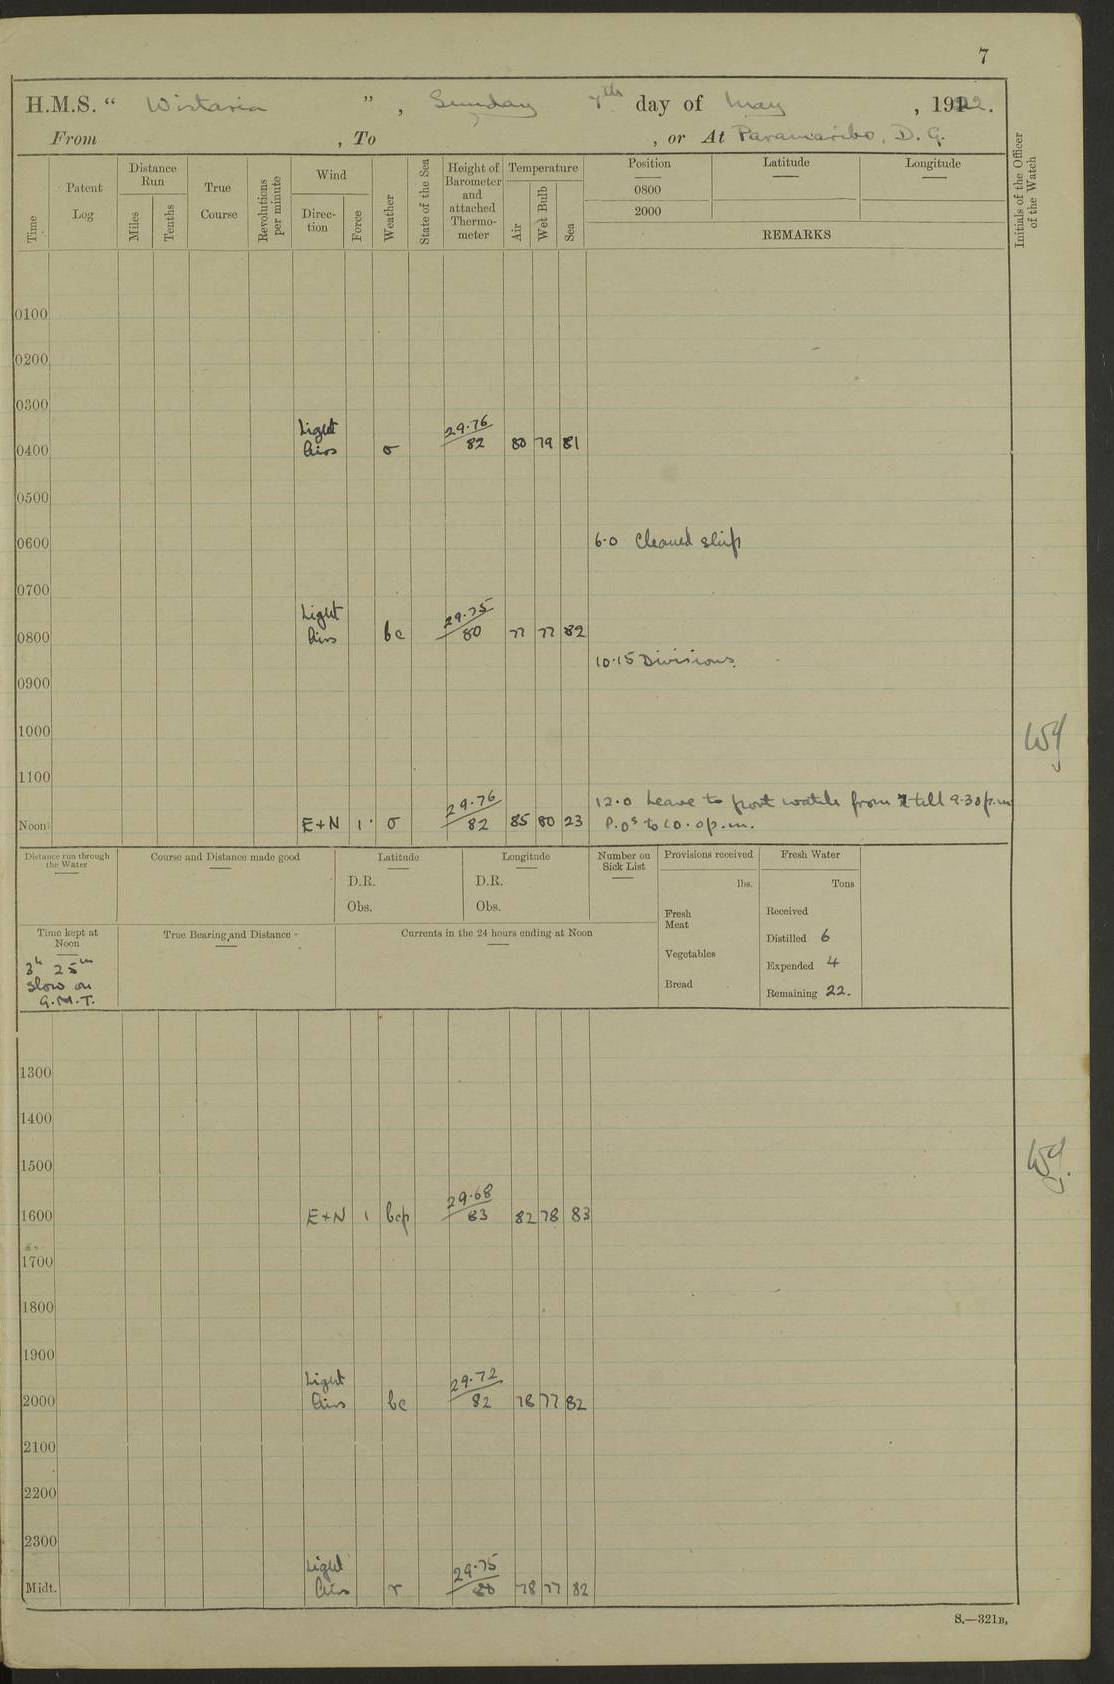 7
H.M.S. “ Wistaria ” , Sunday 7th day of May , 1922.
From , To , or At Paramaribo, D. G.
Time
Patent Log
Distance Run
Miles
Tenths
True Course
Revolutions per minute
Wind
Direction
Force
Weather
State of the Sea
Height of Barometer and attached Thermometer
Temperature
Air
Wet Bulb
Sea
Position
0800
2000
Latitude
Longitude
REMARKS
Initials of the Officer of the Watch
0100
0200
0300
Light 29.76
0400 Airs o 82 80 79 81
0500
0600 6.0 Cleaned ship
0700
Light 29.75
0800 Airs bc 80 77 77 82
10.15 Divisions.
0900
1000
1100
29.76 12.0 Leave to port watch from 1 till 9.30 p.m
Noon E+N 1 o 82 85 80 23 P.Os to 10.0 p.m.
Distance run through the Water
Course and Distance made good
Latitude
D.R.
Obs.
Longitude
D.R.
Obs.
Number on Sick List
Provisions received
lbs.
Fresh Meat
Vegetables
Bread
Fresh Water
Tons
Received
Distilled 6
Expended 4
Remaining 22.
Time kept at Noon
3h 25m
slow on
G.M.T.
True Bearing and Distance
Currents in the 24 hours ending at Noon
1300
1400
1500
29.68
1600 E+N 1 bcp 83 82 78 83
1700
1800
1900
Light 29.72
2000 Airs bc 82 78 77 82
2100
2200
2300
Light 29.75
Midt. Airs r 80 78 77 82
S.—321B.